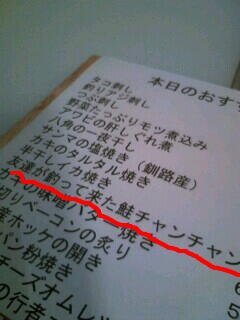 本日のおすす
タコ刺し
釣りアジ刺し
つぶ刺し
野菜たっぷりモツ煮込み
アワビの肝しぐれ煮
サンマの一夜干し
カキのタルタル焼き（釧路産）
半干しイカ焼き
友達が釣って来た鮭チャンチャン
カキの味噌バター焼き
切りベーコンの炙り
産ホッケの開き
パン粉焼き
チーズオムレツ
の行者